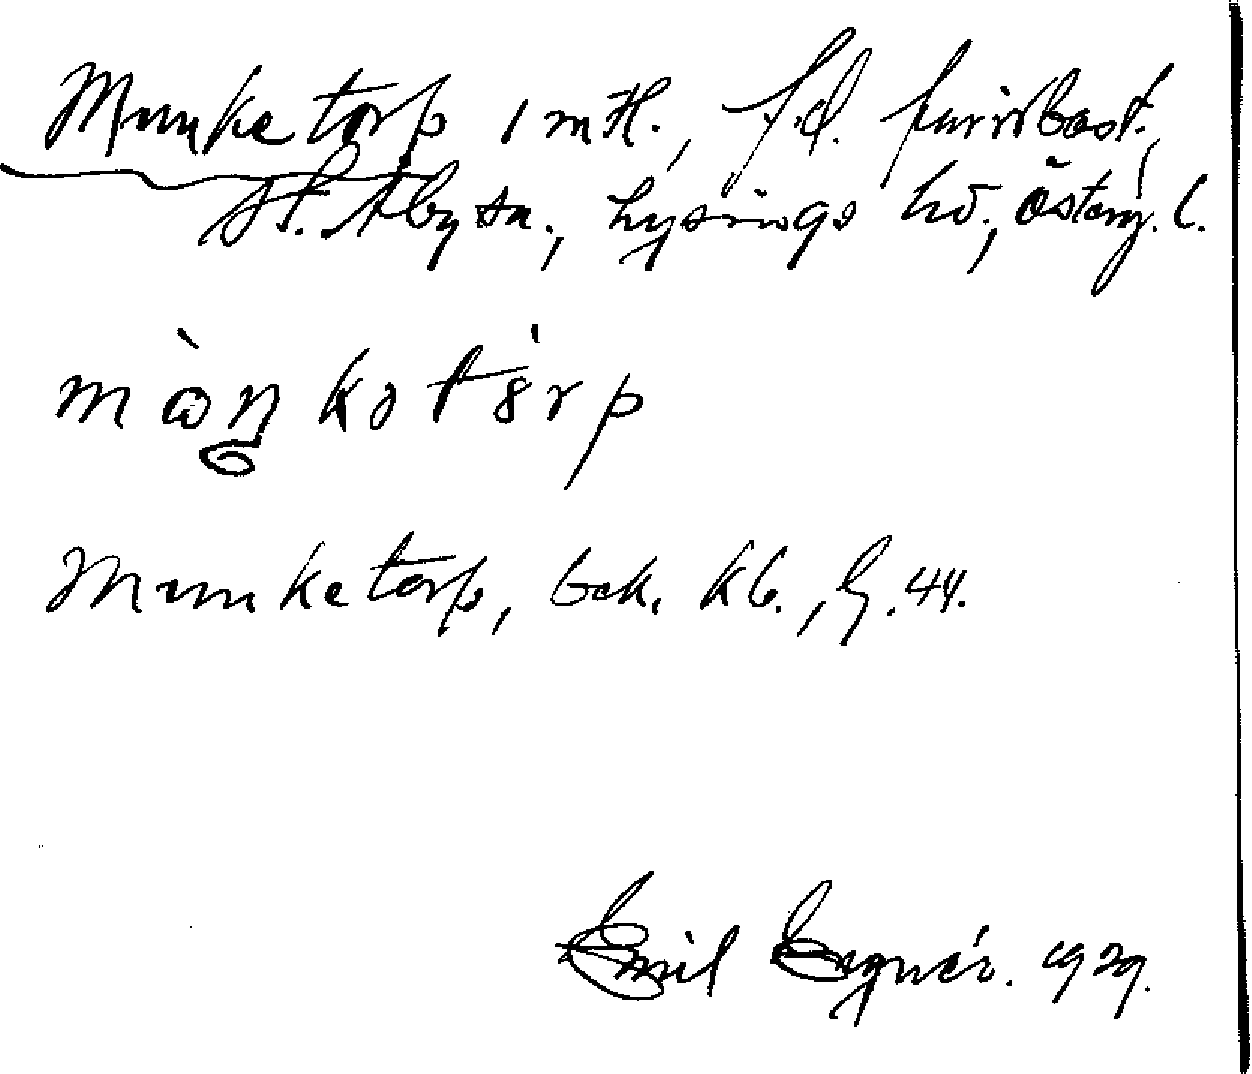 Munketorp 1 mtl., f.d. furirbost.,
St. Åby sn., Lysings hd., Östерg. l.
màŋkɔtȯrp
Munketorp, bek. kb., G. 44.
Emil 1929.